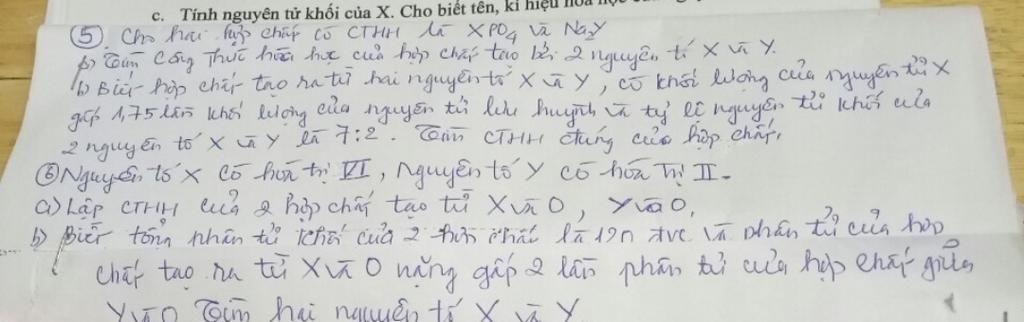 c. Tính nguyên tử khối của X. Cho biết tên, kí hiệu hóa học
⑤. Cho hai hợp chất có CTHH là XPO₄ và Na₂Y
a) Tìm công thức hóa học của hợp chất tạo bởi 2 nguyên tố X và Y.
b) Biết hợp chất tạo ra từ hai nguyên tố X và Y, có khối lượng của nguyên tử X
gấp 1,75 lần khối lượng của nguyên tử lưu huỳnh và tỷ lệ nguyên tử khối của
2 nguyên tố X và Y là 7:2. Tìm CTHH đúng của hợp chất.
⑥ Nguyên tố X có hóa trị VI, nguyên tố Y có hóa trị II.
a) Lập CTHH của 2 hợp chất tạo từ X và O, Y và O.
b) Biết tổng phân tử khối của 2 hợp chất là 120 đvc và phân tử của hợp
chất tạo ra từ X và O nặng gấp 2 lần phân tử của hợp chất giữa
Y và O Tìm hai nguyên tố X và Y